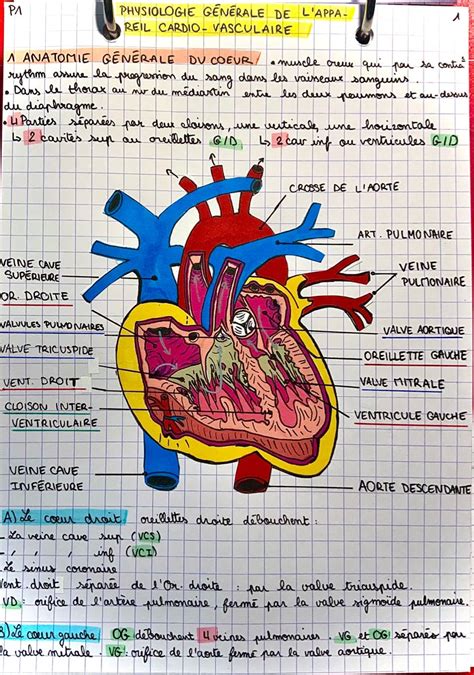 P1
1
PHYSIOLOGIE GÉNÉRALE DE L'APPA-
REIL CARDIO-VASCULAIRE
1 ANATOMIE GÉNÉRALE DU COEUR / • muscle creux qui par sa contra
rythm assure la progression du sang dans les vaisseaux sanguins.
• Dans le thorax au nv du médiastin entre les deux poumons et au-dessus
du diaphragme.
• 4 Parties séparées par deux cloisons, une verticale, une horizontale
↳ 2 cavités sup ou oreillettes G/D ↳ 2 cav inf ou ventricules G/D
CROSSE DE L'AORTE
ART. PULMONAIRE
VEINE CAVE
SUPÉRIEURE
VEINE
PULMONAIRE
OR. DROITE
VALVULES PULMONAIRES
VALVE AORTIQUE
VALVE TRICUSPIDE
OREILLETTE GAUCHE
VENT. DROIT
VALVE MITRALE
CLOISON INTER-
VENTRICULAIRE
VENTRICULE GAUCHE
VEINE CAVE
INFÉRIEURE
AORTE DESCENDANTE
A) Le coeur droit / oreillettes droite débouchent :
- La veine cave sup (VCS)
- / / / inf (VCI)
- Le sinus coronaire
Vent. droit séparée de l'Or. droite : par la valve tricuspide.
VD : orifice de l'artère pulmonaire, fermé par la valve sigmoïde pulmonaire.
B) Le coeur gauche / OG débouchent 4 veines pulmonaires. VG et OG séparés par
la valve mitrale. VG : orifice de l'aorte fermé par la valve aortique.